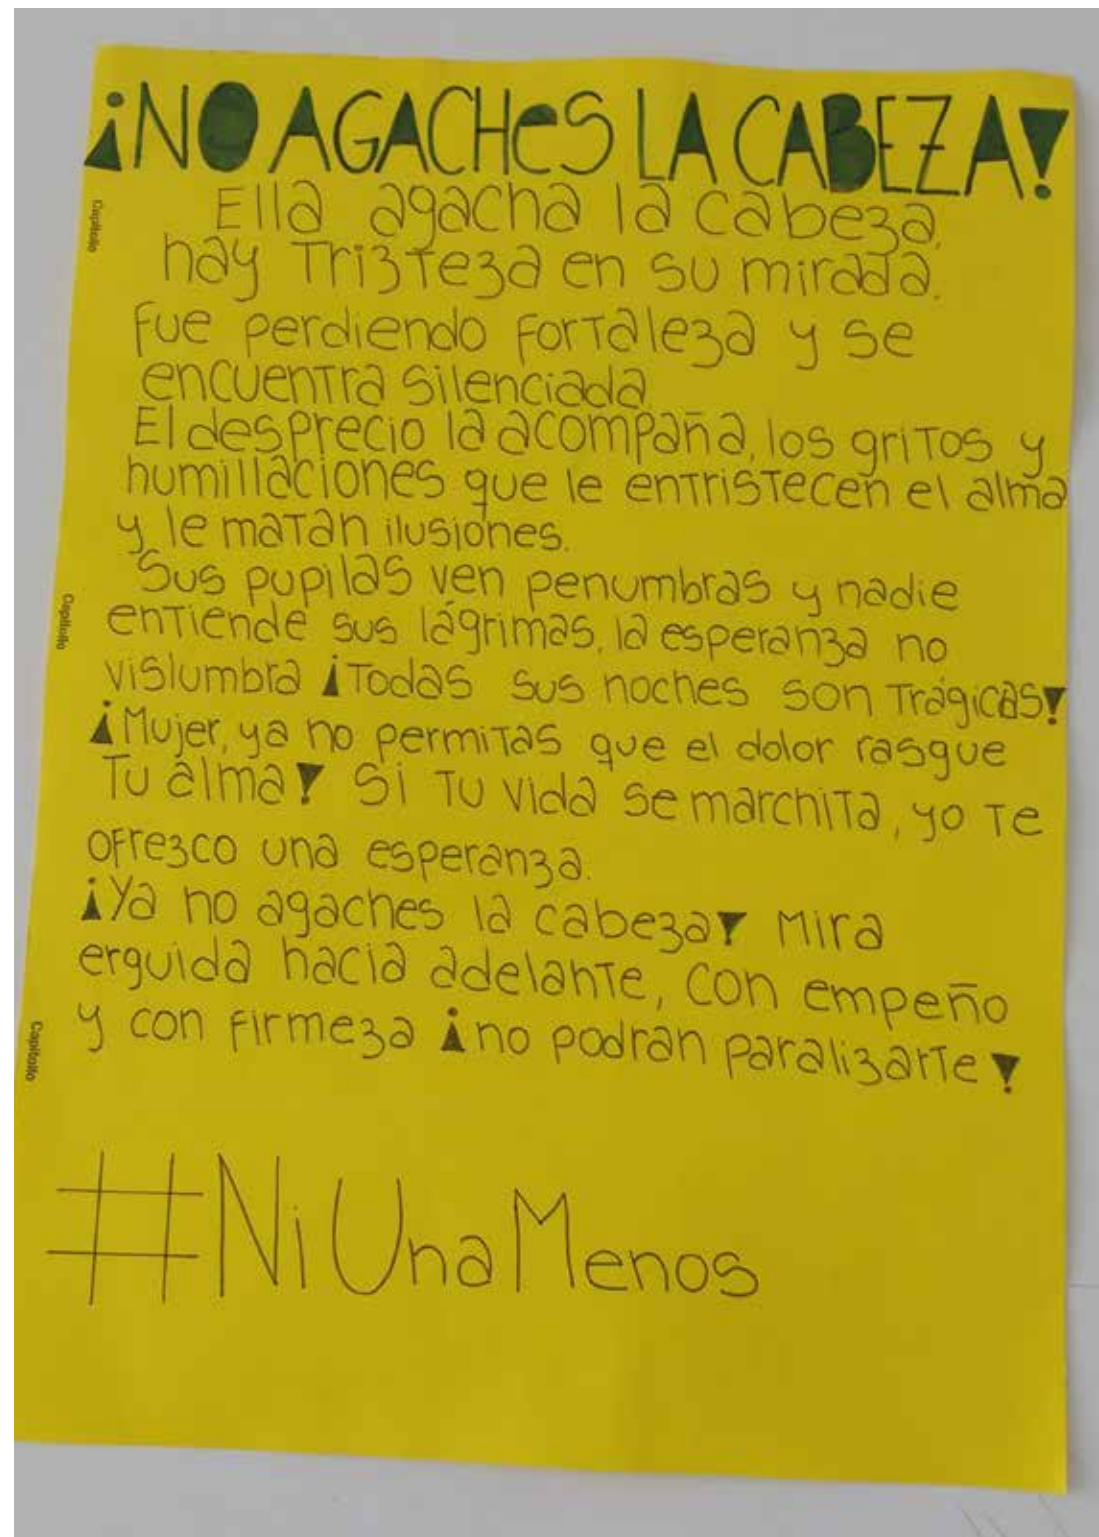 ¡NO AGACHeS LA CABEZA!
Ella agacha la cabeza,
hay Tristeza en su mirada.
Fue perdiendo forTaleza y se
encuenTra silenciada
El desprecio la acompaña, los griTos y
humillaciones que le enTrisTecen el alma
y le maTan ilusiones.
Sus pupilas ven penumbras y nadie
enTiende sus lágrimas, la esperanza no
vislumbra ¡Todas sus noches son Trágicas!
¡Mujer, ya no permiTas que el dolor rasgue
Tu alma! Si Tu vida se marchiTa, yo Te
ofrezco una esperanza.
¡Ya no agaches la cabeza! Mira
erguida hacia adelanTe, con empeño
y con firmeza ¡no podran paralizarTe!
#NiUnaMenos
Capitolio
Capitolio
Capitolio